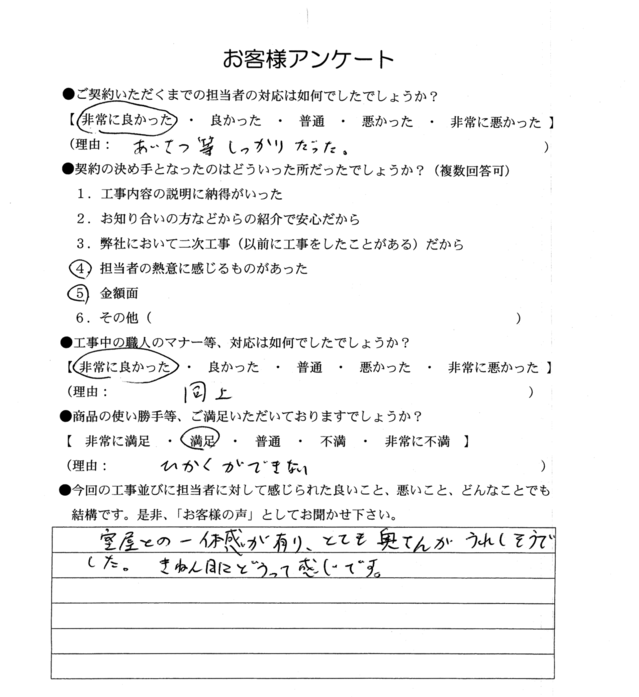 お客様アンケート
●ご契約いただくまでの担当者の対応は如何でしたでしょうか？
【 非常に良かった ・ 良かった ・ 普通 ・ 悪かった ・ 非常に悪かった 】
(理由： あいさつ等しっかりだった。 )
●契約の決め手となったのはどういった所だったでしょうか？（複数回答可）
１．工事内容の説明に納得がいった
２．お知り合いの方などからの紹介で安心だから
３．弊社において二次工事（以前に工事をしたことがある）だから
４．担当者の熱意に感じるものがあった
５．金額面
６．その他（ ）
●工事中の職人のマナー等、対応は如何でしたでしょうか？
【 非常に良かった ・ 良かった ・ 普通 ・ 悪かった ・ 非常に悪かった 】
(理由： 同上 )
●商品の使い勝手等、ご満足いただいておりますでしょうか？
【 非常に満足 ・ 満足 ・ 普通 ・ 不満 ・ 非常に不満 】
(理由： ひかくができない )
●今回の工事並びに担当者に対して感じられた良いこと、悪いこと、どんなことでも
結構です。是非、「お客様の声」としてお聞かせ下さい。
室屋との一体感が有り、とても奥さんがうれしそうで
した。 きねん日にどうって感じです。